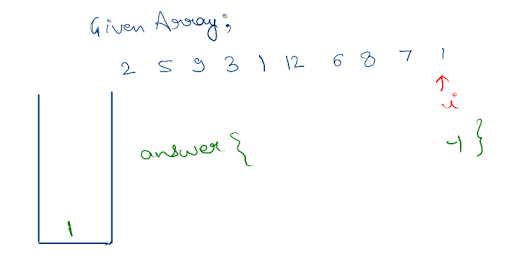 Given Array;
2 5 9 3 1 12 6 8 7 1
i
answer { -1 }
1